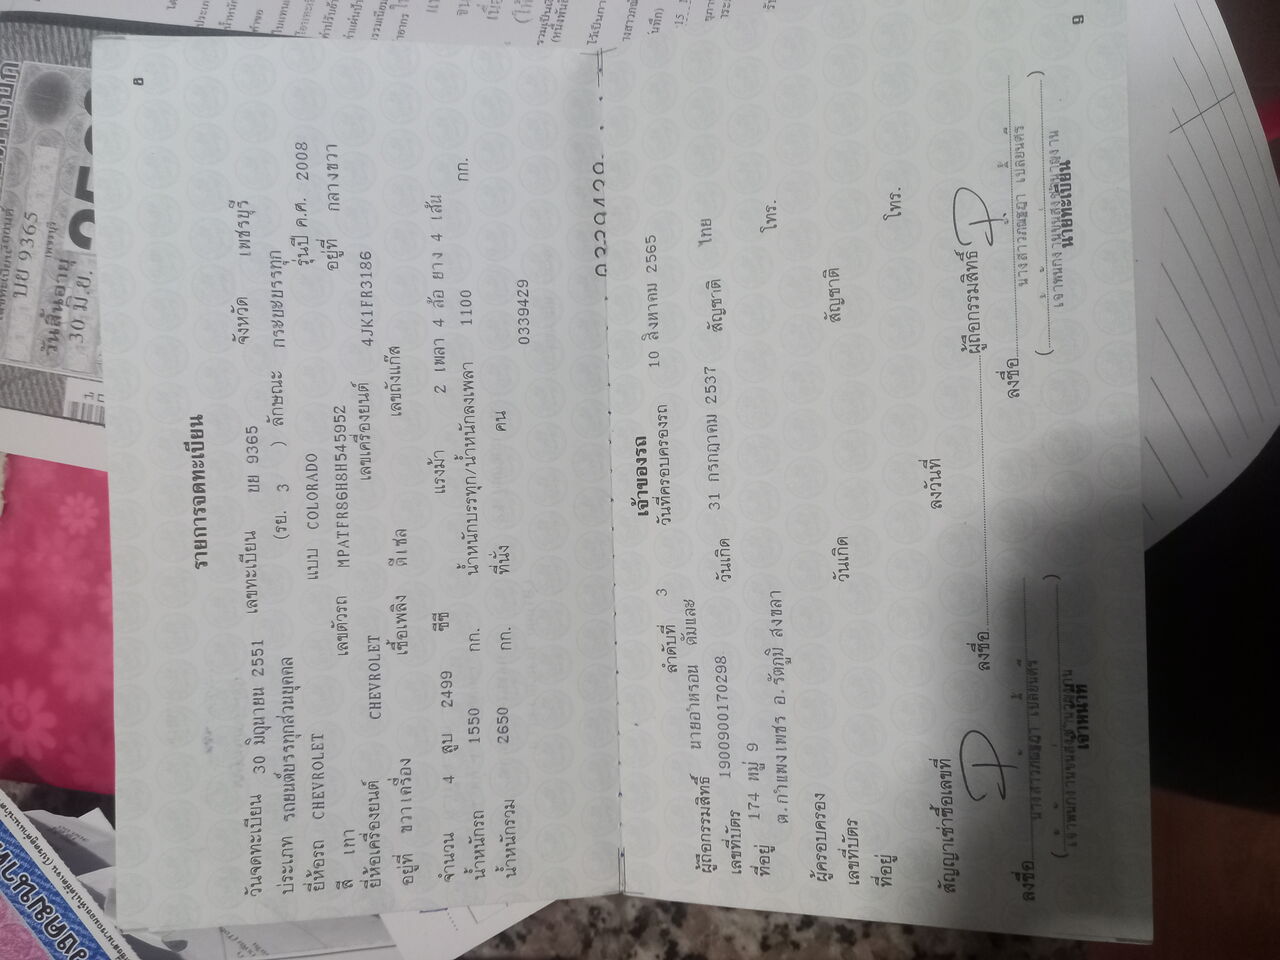 8
รายการจดทะเบียน
วันจดทะเบียน 30 มิถุนายน 2551 เลขทะเบียน บย 9365 จังหวัด เพชรบุรี
ประเภท รถยนต์บรรทุกส่วนบุคคล (รย. 3 ) ลักษณะ กระบะบรรทุก
ยี่ห้อรถ CHEVROLET แบบ COLORADO รุ่นปี ค.ศ. 2008
สี เทา เลขตัวรถ MPATFR86H8H545952 อยู่ที่ กลางขวา
ยี่ห้อเครื่องยนต์ CHEVROLET เลขเครื่องยนต์ 4JK1FR3186
อยู่ที่ ขวาเครื่อง เชื้อเพลิง ดีเซล เลขถังแก๊ส
จำนวน 4 สูบ 2499 ซีซี แรงม้า 2 เพลา 4 ล้อ ยาง 4 เส้น
น้ำหนักรถ 1550 กก. น้ำหนักบรรทุก/น้ำหนักลงเพลา 1100 กก.
น้ำหนักรวม 2650 กก. ที่นั่ง คน
0339429
เจ้าของรถ
ลำดับที่ 3 วันที่ครอบครองรถ 10 สิงหาคม 2565
ผู้ถือกรรมสิทธิ์ นายอำหรอน ดัมและ
เลขที่บัตร 1900900170298 วันเกิด 31 กรกฎาคม 2537 สัญชาติ ไทย
ที่อยู่ 174 หมู่ 9 โทร.
ต.กำแพงเพชร อ.รัตภูมิ สงขลา
ผู้ครอบครอง
เลขที่บัตร วันเกิด สัญชาติ
ที่อยู่ โทร.
สัญญาเช่าซื้อเลขที่ ลงวันที่
ลงชื่อ ผู้ถือกรรมสิทธิ์
ลงชื่อ ลงชื่อ
เจ้าพนักงานขนส่งชำนาญงาน เจ้าพนักงานขนส่งชำนาญงาน
เจ้าหน้าที่ นายทะเบียน
9
บย 9365
เพชรบุรี
วันสิ้นอายุ
30 มิ.ย.